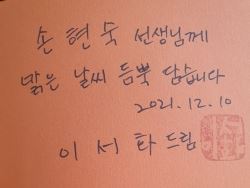 손현숙 선생님께
맑은 날씨 듬뿍 담습니다
2021.12.10
이서화 드림